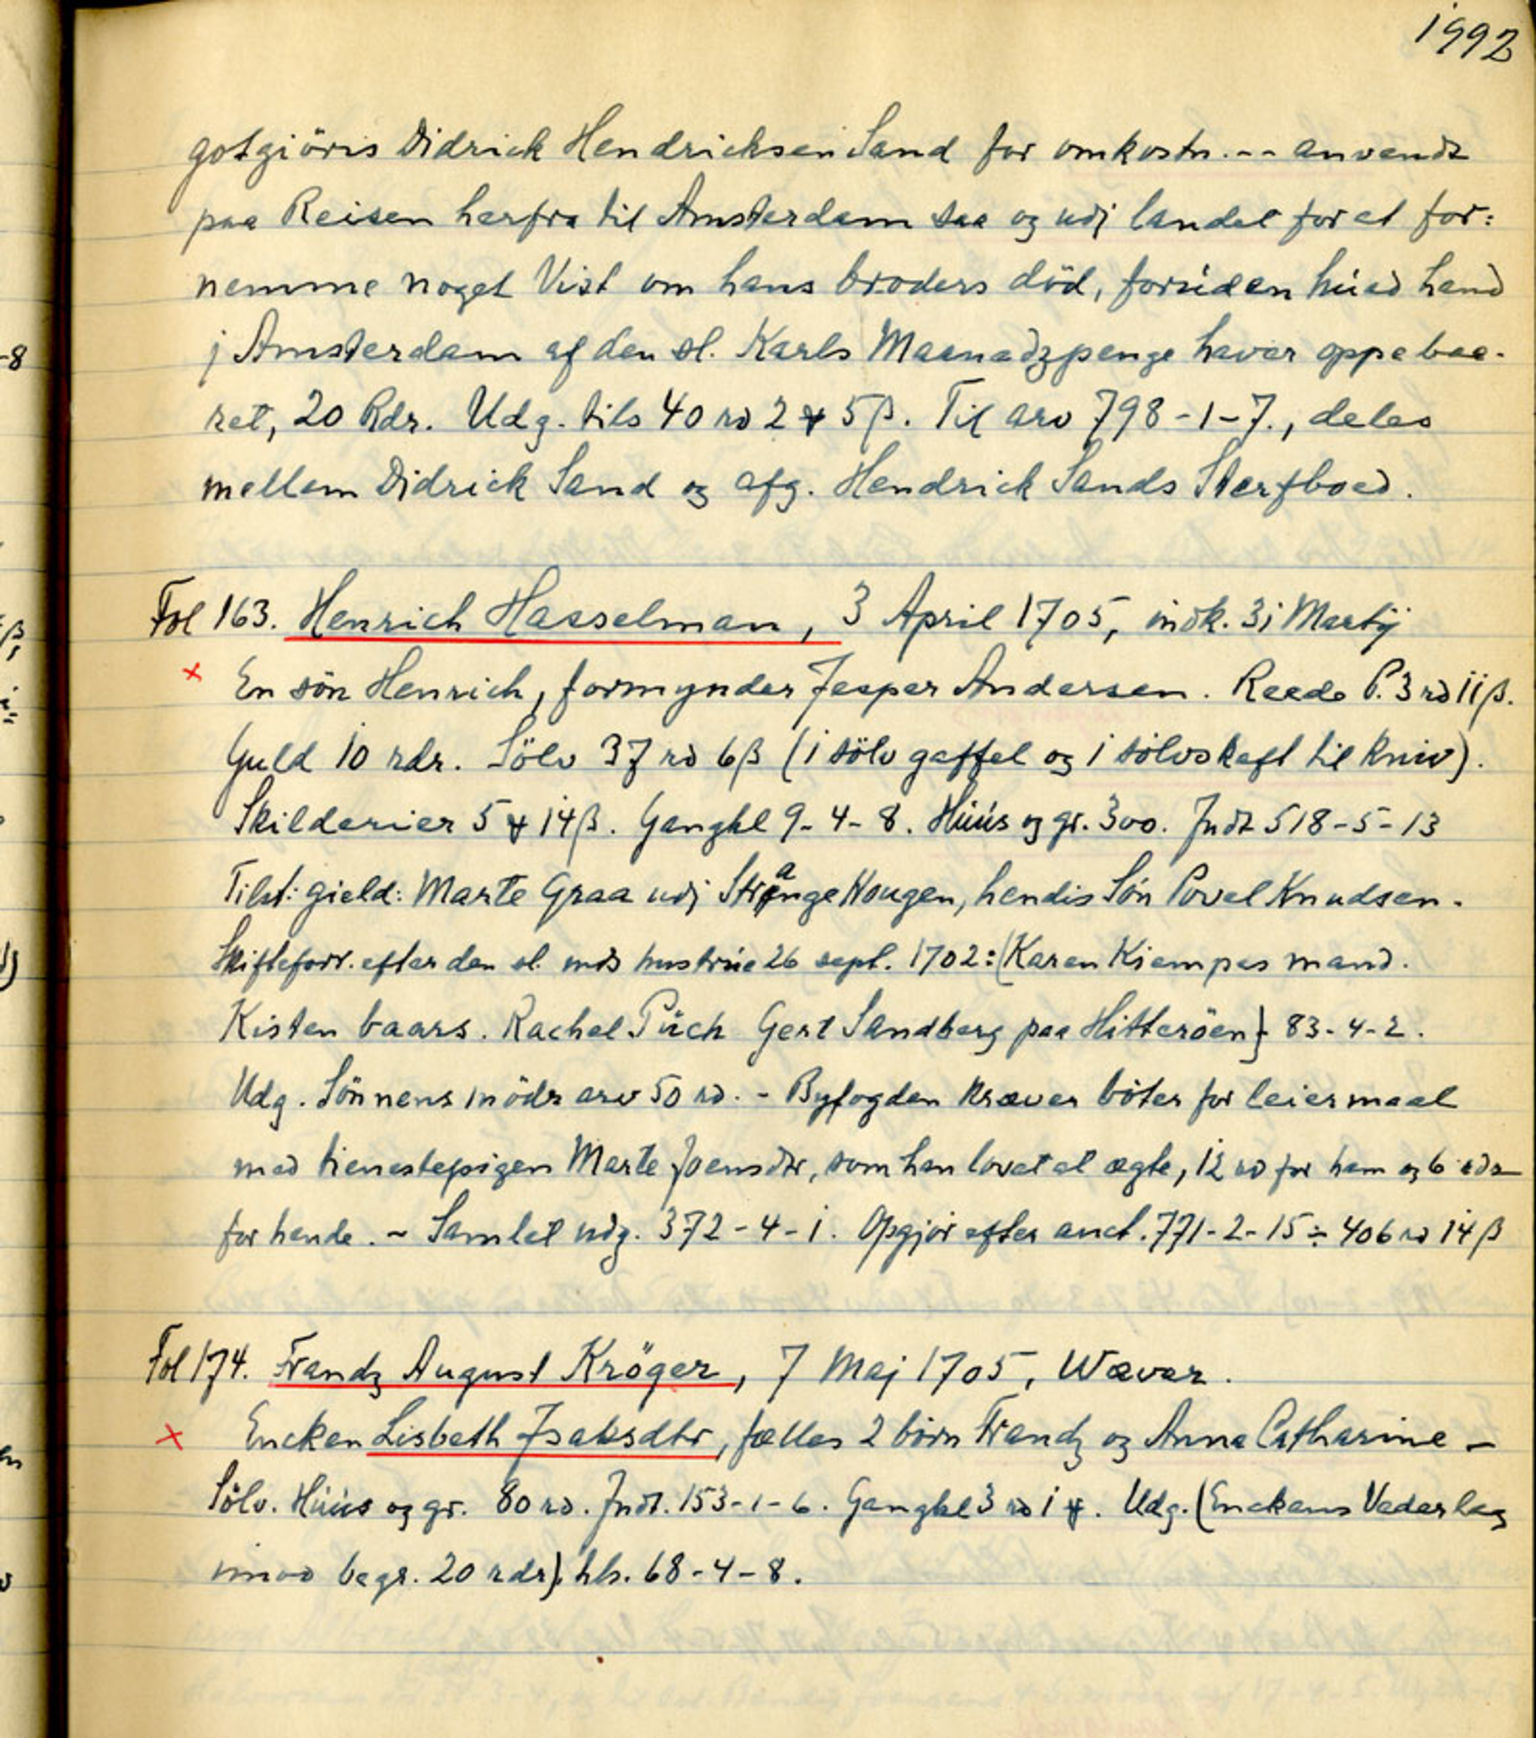 1992
gotgiöris Didrick Hendricksen Sand for omkostn. -- anvendt
paa Reisen herfra til Amsterdam saa og udj landet for at for:
nemme noget Vist om hans broders död, foruden húad hand
j Amsterdam af den sl. Karls Maanadzpenge haver oppebaa-
ret, 20 Rdr. Udg. tils 40 rd 2 ↓ 5 β. Til arv 798-1-7., deles
mellem Didrick Sand og afg. Hendrick Sands Sterfboed.
Fol 163. Henrich Hasselman, 3 April 1705, indk. 31 Martij
× En sön Henrich, formynder Jesper Andersen. Reede P. 3 rd 11 β.
Guld 10 rdr. Sölv 37 rd 6 β (1 sölv gaffel og 1 sölvskaft til kniv).
Skilderier 5 ↓ 14 β. Gangkl 9-4-8. Húus og gr. 300. Jndt 518-5-13
Tilst: gield: Marte Graa udj StrangeHougen, hendis Sön Povel Knudsen.
Skifteforr. efter den sl. mds hustrúe 26 sept. 1702: (Karen Kiempes mand.
Kisten baars. Rachel Púch Gert Sandberg paa Hitteröen) 83-4-2.
Udg. Sönnens mödr arv 50 rd. - Byfogden kræver böter for leiermaal
med tienestepigen Marte Joensdtr, som han lovet at ægte, 12 rd for ham og 6 rdr
for hende. - Samlet udg. 372-4-1. Opgjör efter auct. 771-2-15 ÷ 406 rd 14 β
Fol 174. Frandz August Kröger, 7 Maj 1705, Wæver.
× Encken Lisbeth Jsaksdtr, fælles 2 börn Frandz og Anna Catharine -
Sölv. Húus og gr. 80 rd. Jndt. 153-1-6. Gangkl 3 rd 1 ↓. Udg. (Enckens Vederlag
imod begr. 20 rdr), tils. 68-4-8.